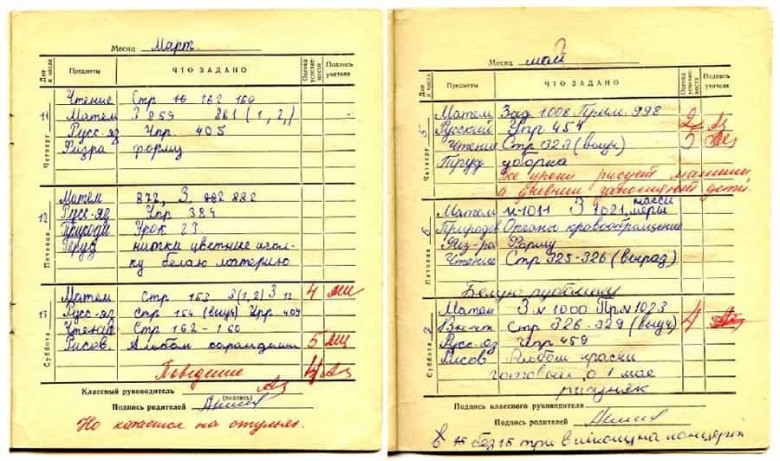 Месяц Март
Дни и числа Предметы ЧТО ЗАДАНО Оценка успеваемости Подпись учителя
Четверг 11
Чтение Стр 162 160
Матем З 859 861 (1, 2,)
Русс-яз Упр 405
Физра форму
Пятница 12
Матем 872, З. 882
Русс-яз Упр 384
Природ Урок 23
Труд нитки цветные игол-
ку белаю материю
Суббота 13
Матем Стр 153 З(1, 2) З 12 4
Русс-яз стр 154 (выуч) Упр 409
Чтение Стр 162-160
Рисов. Альбом карандаши 5
Поведение 4
Классный руководитель
(подпись)
Подпись родителей
Но катается на стульях.
Месяц май
Дни и числа Предметы ЧТО ЗАДАНО Оценка успеваемости Подпись учителя
Четверг 5
Матем Зад 1008 Прим. 998 2
Русский Упр 454 3
Чтение Стр 323 (выуч)
Труд уборка
уроки рисует машины
а дневник заполняют дети.
Пятница 6
Матем N-1011 З 1021, массы меры
Природов Органы кровообращение
Физ-ра Форму
Чтение Стр 325-326 (выраз)
Белую рубашку
Суббота 7
Матем З N 1000 Прм 1023 4
Стр 326-329 (выуч)
Русс-яз Упр 459
Рисов Альбом краски
о 1 мае
Подпись классного руководителя
Подпись родителей
без 15 три в школу на концерт